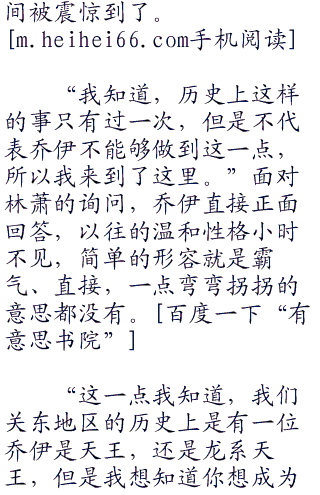 间被震惊到了。
[m.heihei66.com手机阅读]
“我知道，历史上这样
的事只有过一次，但是不代
表乔伊不能够做到这一点，
所以我来到了这里。”面对
林萧的询问，乔伊直接正面
回答，以往的温和性格小时
不见，简单的形容就是霸
气、直接，一点弯弯拐拐的
意思都没有。[百度一下“有
意思书院”]
“这一点我知道，我们
关东地区的历史上是有一位
乔伊是天王，还是龙系天
王，但是我想知道你想成为